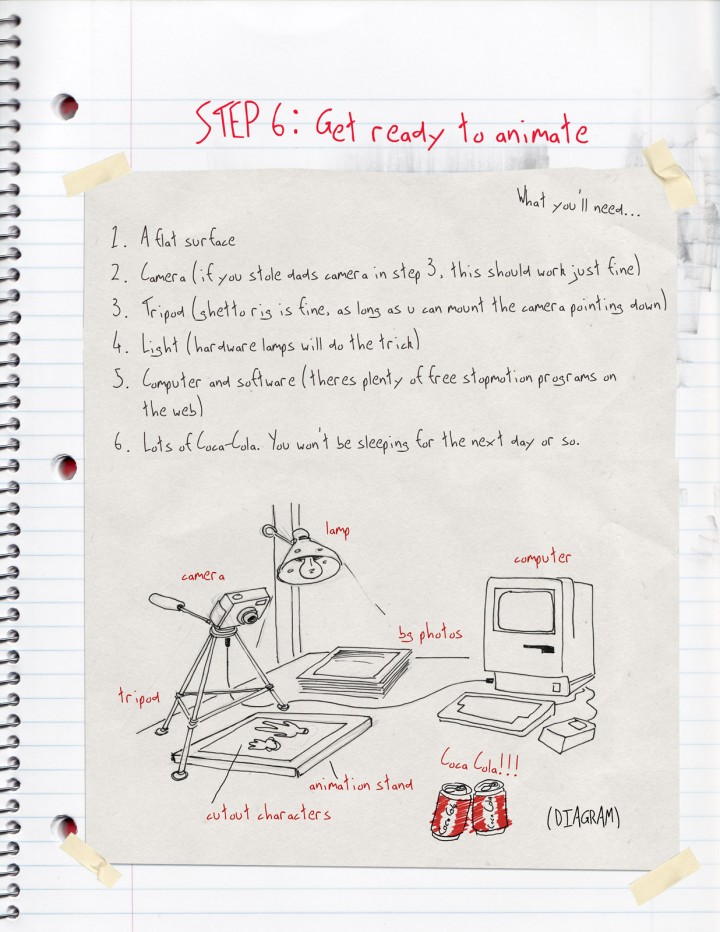 STEP 6: Get ready to animate
What you'll need...
1. A flat surface
2. Camera (if you stole dads camera in step 3, this should work just fine)
3. Tripod (ghetto rig is fine, as long as u can mount the camera pointing down)
4. Light (hardware lamps will do the trick)
5. Computer and software (theres plenty of free stopmotion programs on
the web)
6. Lots of Coca-Cola. You won't be sleeping for the next day or so.
lamp
computer
camera
bg photos
tripod
Coca Cola!!!
animation stand
cutout characters
Coca Cola
Coca Cola
(DIAGRAM)